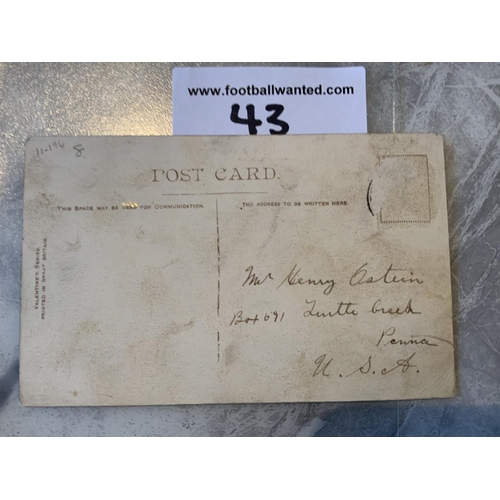 www.footballwanted.com
43
11-196 8
POST CARD.
THIS SPACE MAY BE USED FOR COMMUNICATION.
THE ADDRESS TO BE WRITTEN HERE.
VALENTINE'S SERIES
PRINTED IN GREAT BRITAIN.
Mr Henry Ostein
Box 691 Turtle Creek
Penna
U.S.A.